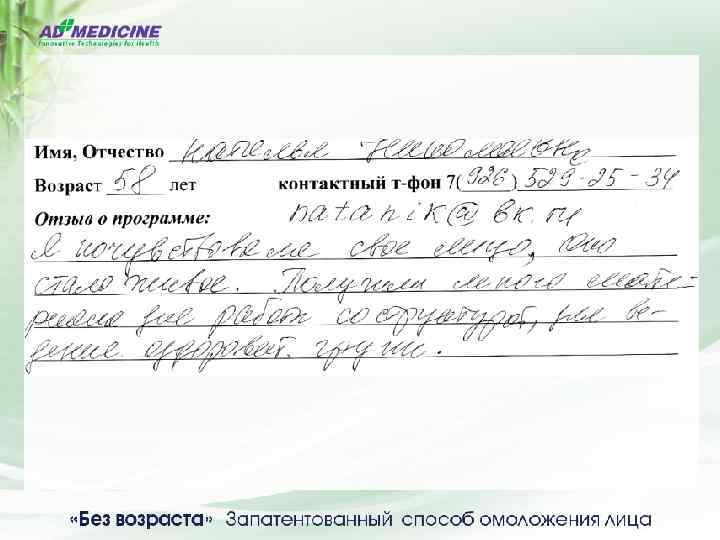 AD MEDICINE
Innovative Technologies for Health
Имя, Отчество Наталья Николаевна
Возраст 58 лет контактный т-фон 7(926) 529-25-34
Отзыв о программе: natanik@вк.ru
Я почувствовала свое лицо, оно
стало живое. Получили много мате-
риала для работы со структурой, для ве-
дение оздоровит. группы.
«Без возраста» Запатентованный способ омоложения лица